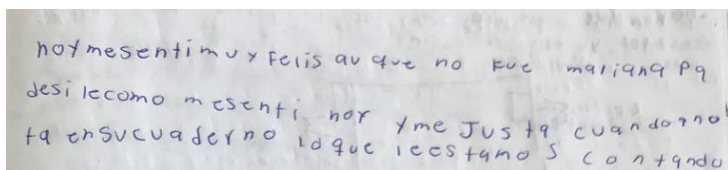 hoymesentimuy Felis au que no Fue mariana pa
desi lecomo mesenti hoy yme Justa cuandoano
ta ensucuaderno loque leestamos contando